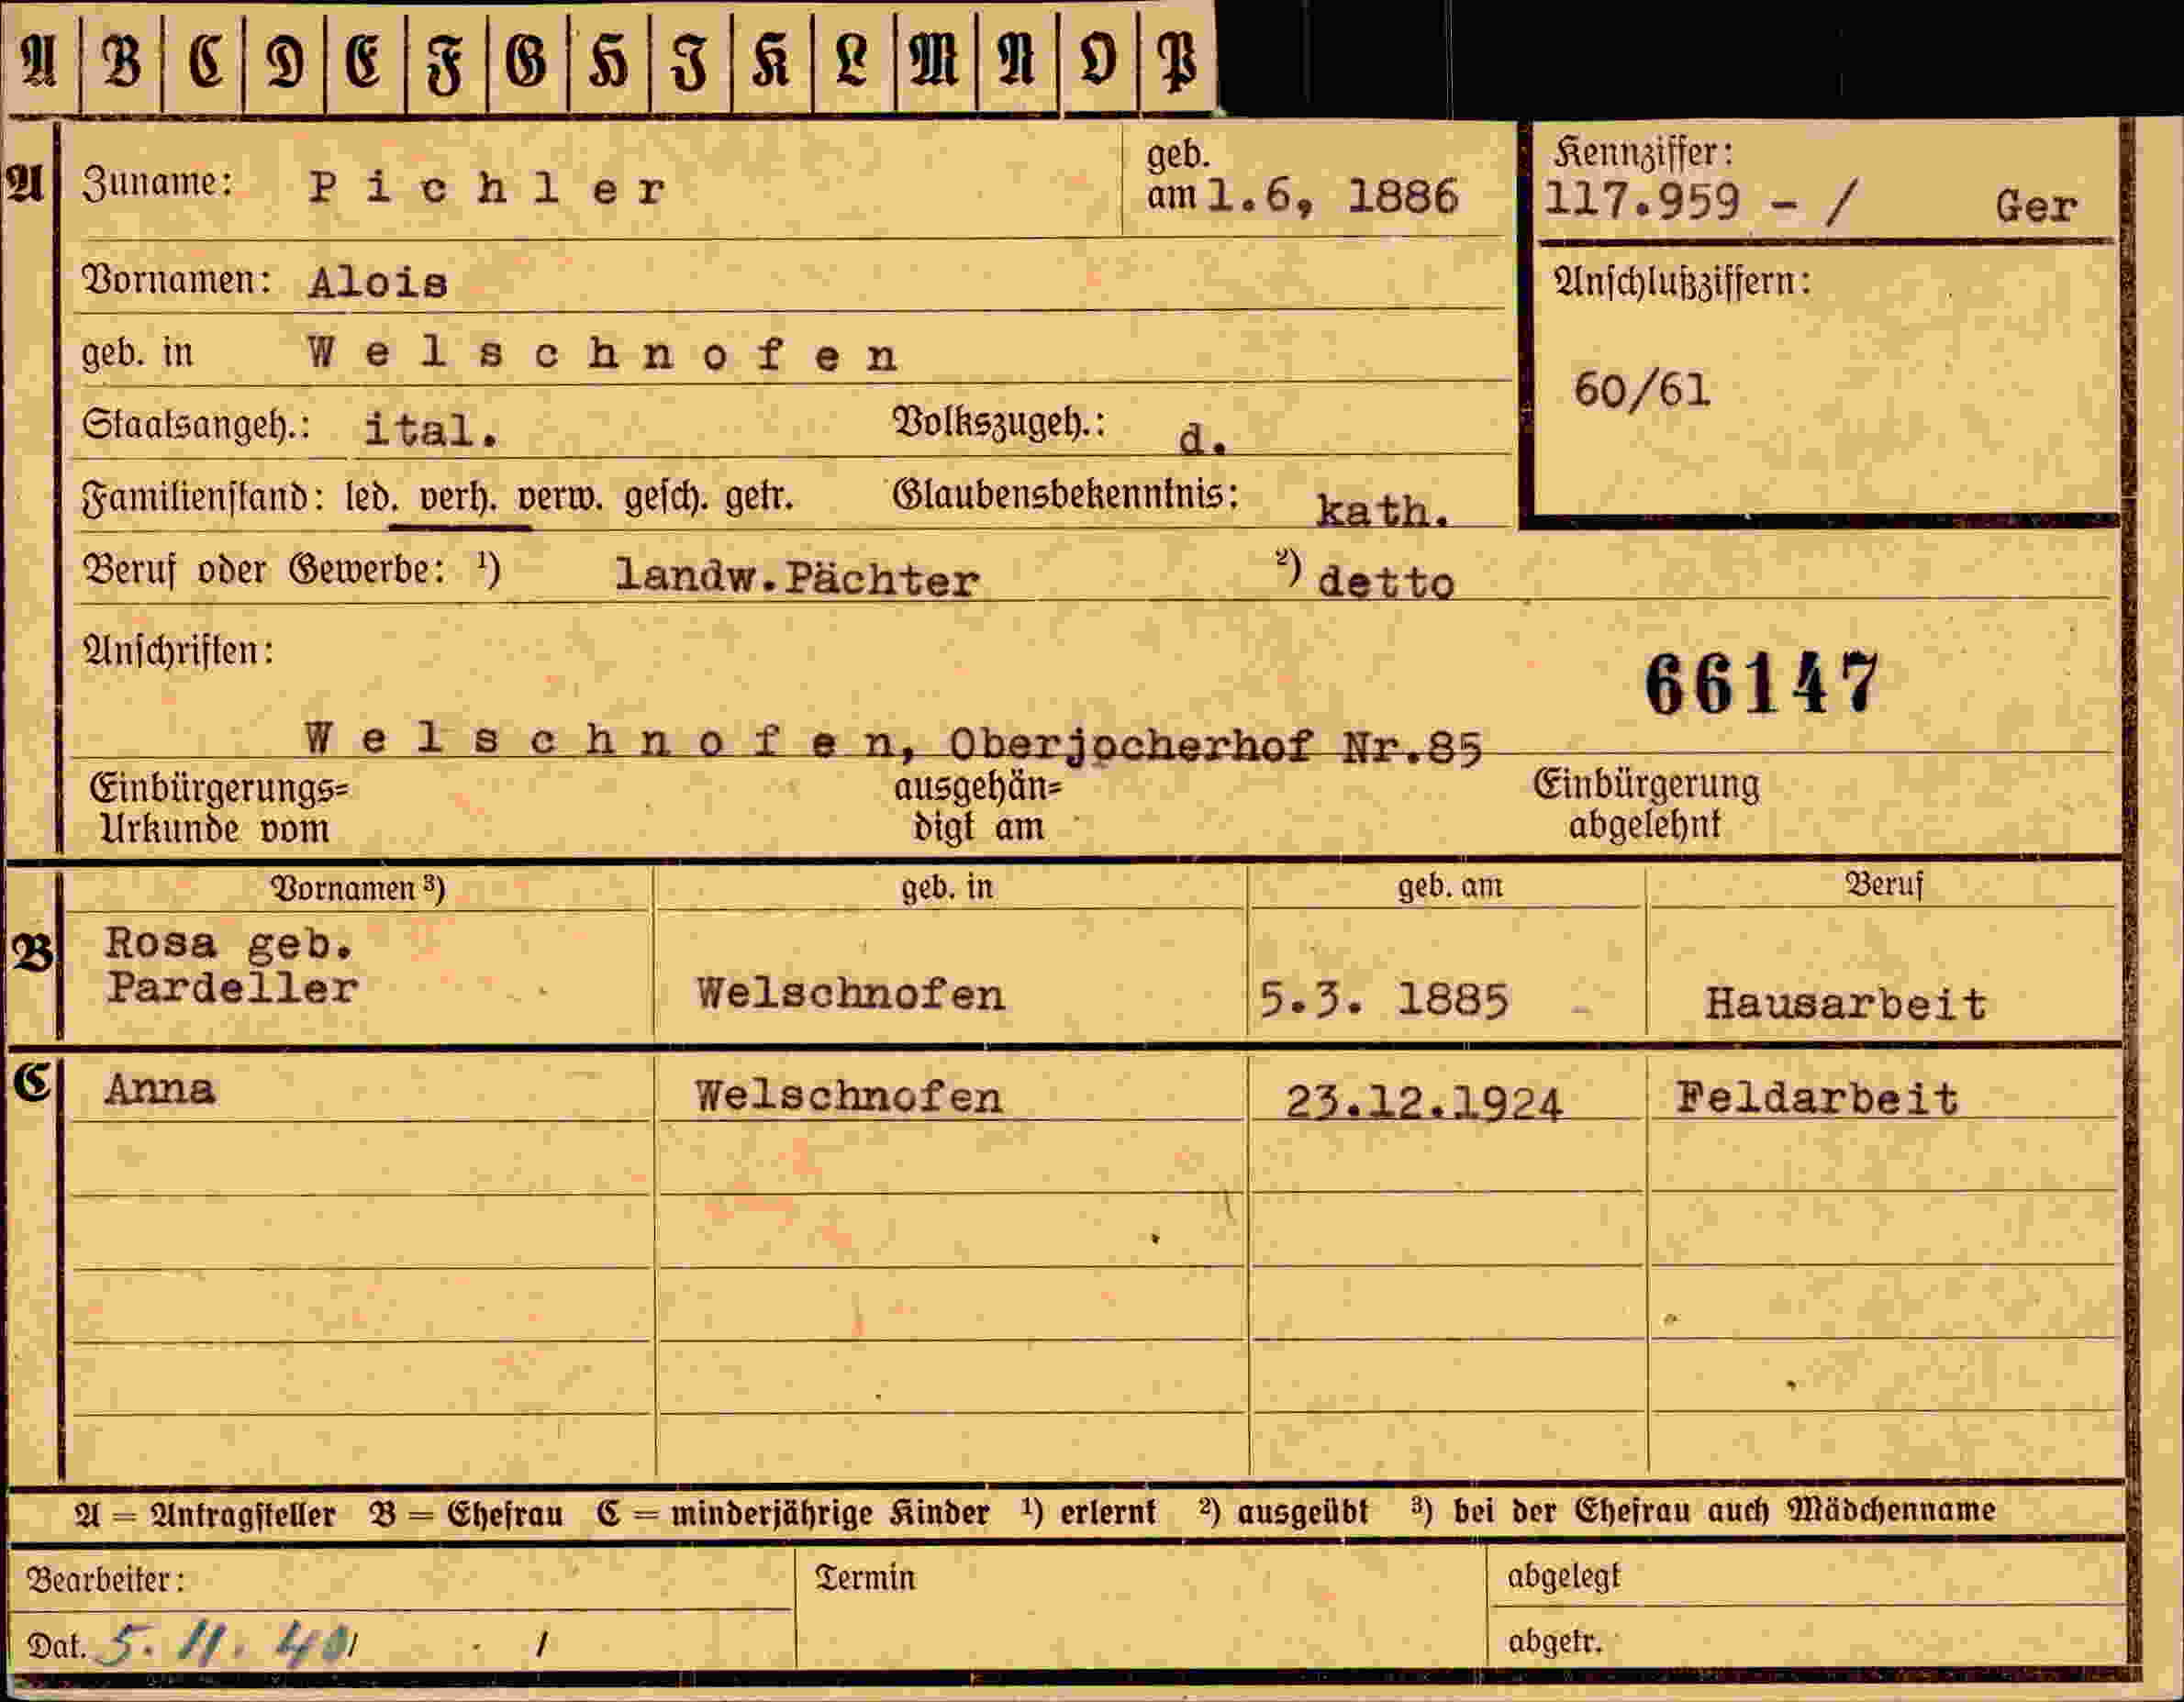 A B C D E F G H I K L M N O P
A Zuname: Pichler geb. am 1.6, 1886
Kennziffer:
117.959 - / Ger
Vornamen: Alois
Anschlußziffern:
60/61
geb. in Welschnofen
Staatsangeh.: ital. Volkszugeh.: d.
Familienstand: led. verh. verw. gesch. getr. Glaubensbekenntnis: kath.
Beruf oder Gewerbe: ¹) landw.Pächter ²) detto
Anschriften:
66147
Welschnofen, Oberjocherhof Nr.85
Einbürgerungs= ausgehän= Einbürgerung
Urkunde vom digt am abgelehnt
Vornamen ³) geb. in geb. am Beruf
B Rosa geb.
Pardeller Welschnofen 5.3. 1885 Hausarbeit
C Anna Welschnofen 23.12.1924 Feldarbeit
A = Antragsteller B = Ehefrau C = minderjährige Kinder ¹) erlernt ²) ausgeübt ³) bei der Ehefrau auch Mädchenname
Bearbeiter: Termin abgelegt
Dat. 5. 11. 40/ . / abgetr.